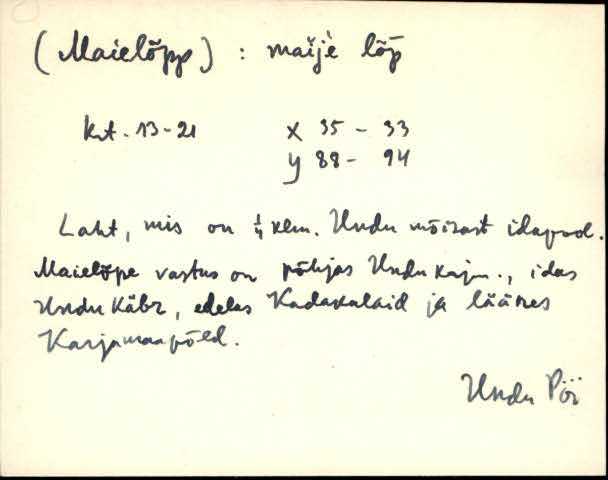 (Maielõpp) : maije lõp
krt. 13-21 x 35 - 33
y 88 - 94
Laht, mis on ¼ klm. Undu mõizast idapool.
Maielõpe vastus on põhjas Undu karjm., idas
Undu Käbr, edelas Kadakalaid ja läänes
Karjamaapõld.
Undu Pöi